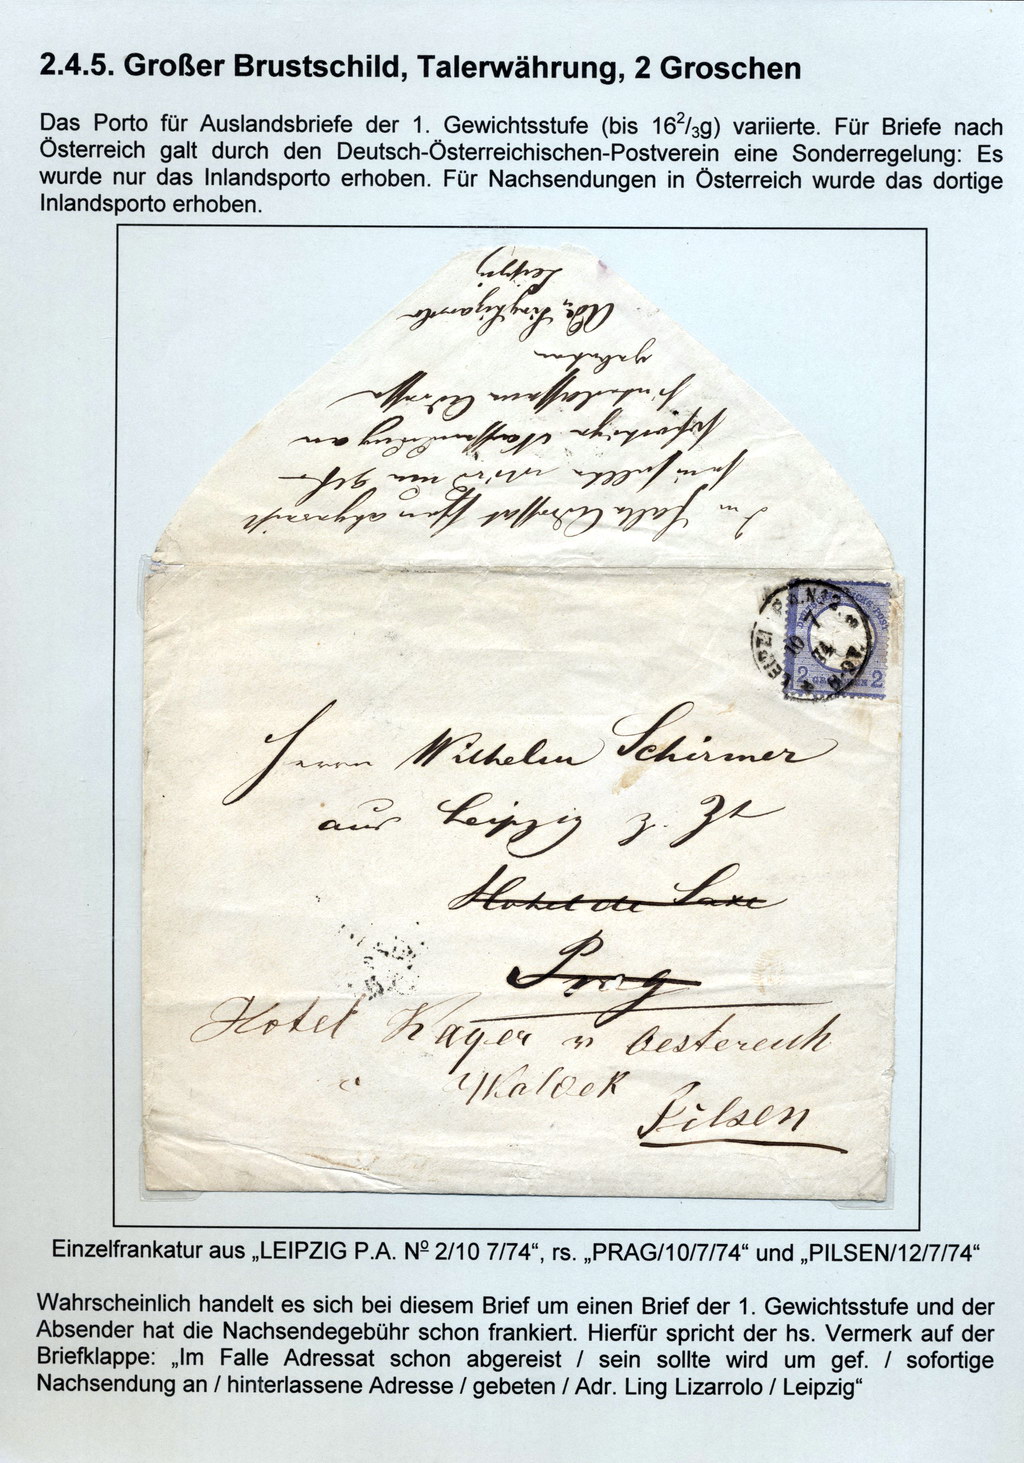 2.4.5. Großer Brustschild, Talerwährung, 2 Groschen
Das Porto für Auslandsbriefe der 1. Gewichtsstufe (bis 16²/₃g) variierte. Für Briefe nach
Österreich galt durch den Deutsch-Österreichischen-Postverein eine Sonderregelung: Es
wurde nur das Inlandsporto erhoben. Für Nachsendungen in Österreich wurde das dortige
Inlandsporto erhoben.
Im Falle Adressat schon abgereist
sein sollte wird um gef.
sofortige Nachsendung an
hinterlassene Adresse
gebeten
Adr. Ling Lizarrolo
Leipzig
LEIPZIG P.A. No 2
10 7
74
2 GROSCHEN 2
Herrn Wilhelm Schirmer
aus Leipzig z. Zt
Hotel de Saxe
Prag
Hotel Kayer v Oestereich
Waldek
Pilsen
Einzelfrankatur aus „LEIPZIG P.A. Nº 2/10 7/74“, rs. „PRAG/10/7/74“ und „PILSEN/12/7/74“
Wahrscheinlich handelt es sich bei diesem Brief um einen Brief der 1. Gewichtsstufe und der
Absender hat die Nachsendegebühr schon frankiert. Hierfür spricht der hs. Vermerk auf der
Briefklappe: „Im Falle Adressat schon abgereist / sein sollte wird um gef. / sofortige
Nachsendung an / hinterlassene Adresse / gebeten / Adr. Ling Lizarrolo / Leipzig“